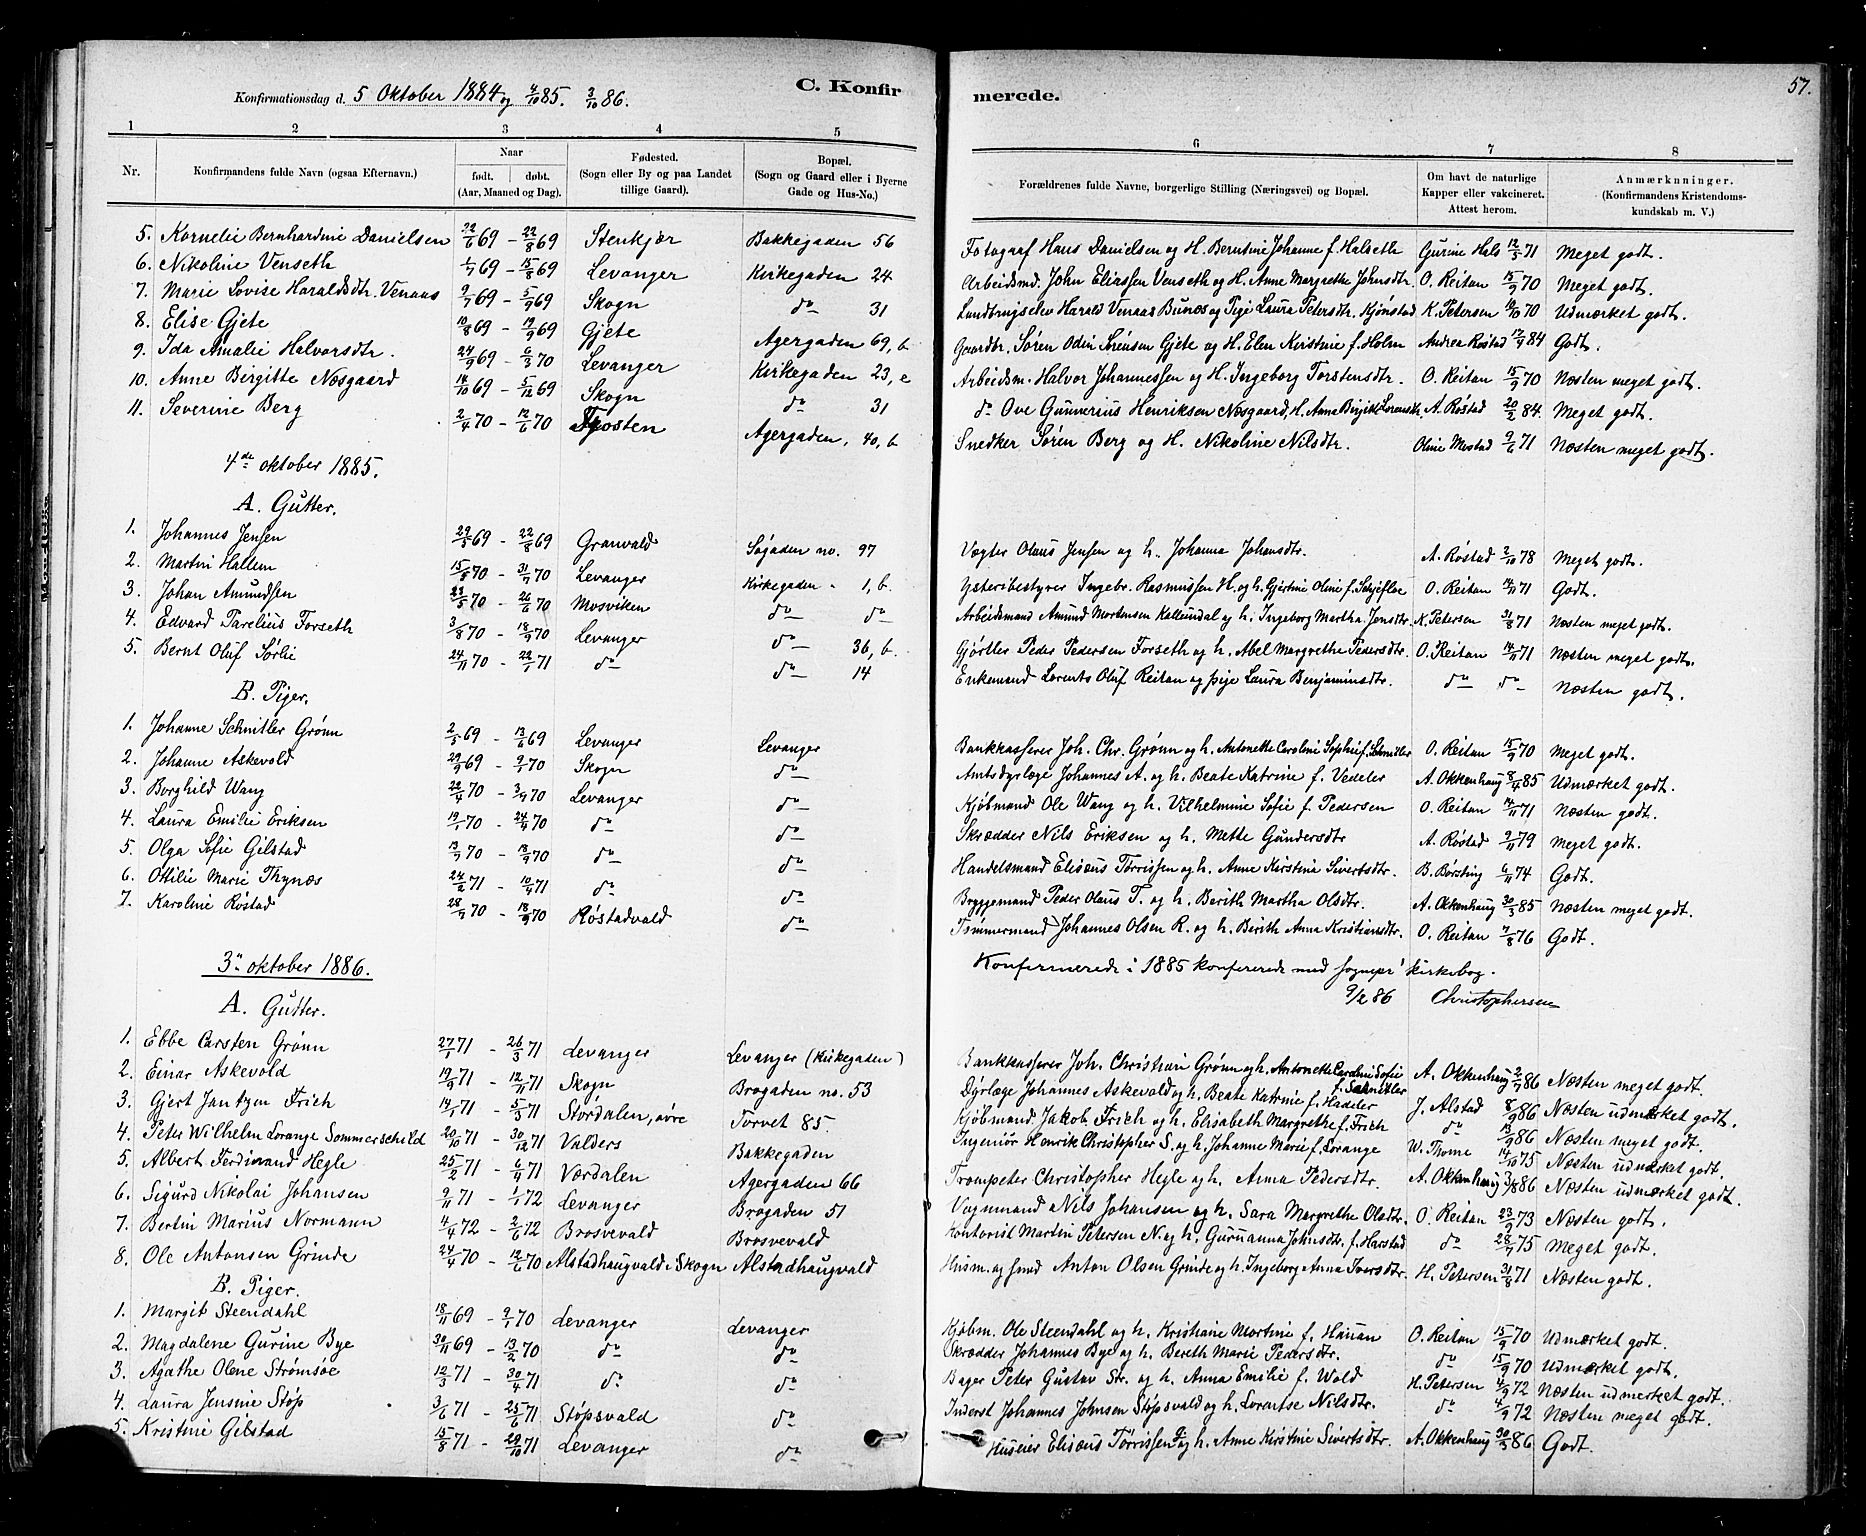 57.
Konfirmationsdag d. 5 Oktober 1884 og 4/10 85. 3/10 86.
C. Konfirmerede.
1 2 3 4 5 6 7 8
Nr. Konfirmandens fulde Navn (ogsaa Efternavn.) Naar født. døbt. (Aar, Maaned og Dag). Fødested. (Sogn eller By og paa Landet tillige Gaard). Bopæl. (Sogn og Gaard eller i Byerne Gade og Hus-No.) Forældrenes fulde Navne, borgerlige Stilling (Næringsvei) og Bopæl. Om havt de naturlige Kapper eller vakcineret. Attest herom. Anmærkninger. (Konfirmandens Kristendomskundskab m. V.)
5. Kornelie Bernhardine Danielsen 22/6 69 - 22/8 69 Stenkjær Bakkegaden 56 Fotograf Hans Danielsen og H. Berntine Johanne f. Halseth Gurine Hals 12/5 71 Meget godt.
6. Nikoline Venseth 1/7 69 - 15/8 69 Levanger Kirkegaden 24 Arbeidsmd. John Eliassen Venseth og H. Anne Margrethe Johnsdtr. O. Reitan 15/9 70 Meget godt.
7. Marie Lovise Haraldsdtr. Venaas 9/7 69 - 5/9 69 Skogn do 31 Landbrugselev Harald Venaas Bunæs og Pige Laura Petersdtr. Kjønstad K. Petersen 12/10 70 Udmærket godt.
8. Elise Gjete 10/8 69 - 19/9 69 Gjete Agergaden 69, b Gaardbr. Søren Odin Sørensen Gjete og H. Elen Kirstine f. Holm Andrea Røstad 17/9 84 Godt.
9. Ida Amalie Halvorsdtr. 24/9 69 - 6/3 70 Levanger Kirkegaden 23, c Arbeidsm. Halvor Johannessen og H. Ingeborg Torstensdtr. O. Reitan 15/9 70 Næsten meget godt.
10. Anne Birgitte Næsgaard 14/10 69 - 5/12 69 Skogn do 31 do Ove Gunnerius Henriksen Næsgaard, H. Anna Birgitte Lorensdtr. A. Røstad 20/2 84 Meget godt.
11. Severine Berg 2/4 70 - 12/6 70 Frosten Agergaden, 40, b Snedker Søren Berg og H. Nikoline Nilsdtr. Oline Mostad 9/6 71 Næsten meget godt.
4de oktober 1885.
A. Gutter.
1. Johannes Jensen 29/5 69 - 22/8 69 Granvald Søgaden no. 97 Vægter Olaus Jensen og h. Johanna Johansdtr. A. Røstad 2/10 78 Meget godt.
2. Martin Hallem 15/5 70 - 31/7 70 Levanger Kirkegaden - 1, b. Ysteribestyrer Ingebr. Rasmussen H. og h. Gjertine Oline f. Schjefloe O. Reitan 14/11 71 Godt.
3. Johan Amundsen 23/5 70 - 26/6 70 Mosviken do do Arbeidsmand Amund Mortensen Kallundal og h. Ingeborg Martha Jensdtr. K. Petersen 31/8 71 Næsten meget godt.
4. Edvard Parelius Forseth 3/8 70 - 18/9 70 Levanger do 36, b. Gjørtler Peder Pedersen Forseth og h. Abel Margrethe Pedersdtr. O. Reitan 14/11 71 Næsten meget godt.
5. Bernt Oluf Sørlie 24/11 70 - 22/1 71 do do 14 Enkemand Lorents Oluf Reitan og pige Laura Benjaminsdtr. do do Næsten godt.
B. Piger.
1. Johanne Schnitler Grønn 2/5 69 - 13/6 69 Levanger Levanger Bankkasserer Joh. Chr. Grønn og h. Antonette Caroline Sophie f. Schnitler O. Reitan 15/9 70 Meget godt.
2. Johanne Askevold 29/9 69 - 9/1 70 Skogn do Amtsdyrlæge Johannes A. og h. Beate Katrine f. Vedeler A. Okkenhaug 8/4 85 Udmærket godt.
3. Borghild Wang 22/4 70 - 3/7 70 Levanger do Kjøbmand Ole Wang og h. Vilhelmine Sofie f. Pedersen O. Reitan 14/11 71 Næsten godt.
4. Laura Emilie Eriksen 19/1 70 - 24/4 70 do do Skrædder Nils Eriksen og h. Mette Gundersdtr A. Røstad 9/11 79 Meget godt.
5. Olga Sofie Gilstad 13/7 70 - 18/9 70 do do Handelsmand Elisæus Tørrissen og h. Anne Kirstina Sivertsdtr. B. Børsting 6/11 74 Godt.
6. Ottilie Marie Thynæs 24/2 71 - 10/4 71 do do Bryggemand Peder Olaus T. og h. Berith Martha Olsdtr. A. Okkenhaug 30/3 85 Næsten meget godt.
7. Karoline Røstad 28/7 70 - 18/9 70 Røstadvald do Tømmermand Johannes Olsen R. og h. Birith Anna Kristiansdtr. O. Reitan 7/8 76 Godt.
Konfirmerede i 1885 konfererede med sognepr' kirkebog.
9/2 86 Christophersen
3' oktober 1886.
A. Gutter.
1. Ebbe Carsten Grønn 27/1 71 - 26/3 71 Levanger Levanger (Kirkegaden) Bankkasserer Joh. Christian Grønn og h. Antonette Caroline Sofie f. Schnitler A. Okkenhaug 2/7 86 Næsten meget godt.
2. Einar Askevold 19/9 71 - 12/11 71 Skogn Brogaden no. 53 Dyrlæge Johannes Askevold og h. Beate Katrine f. Hadeler J. Alstad 8/9 86 Næsten udmærket godt.
3. Gjert Jantzen Frich 14/1 71 - 5/3 71 Størdalen, øvre Torvet 85. Kjøbmand Jakob Frich og h. Elisabeth Margrethe f. Frich do 13/9 86 Næsten meget godt.
4. Peter Wilhelm Lorange Sommerschild 20/10 71 - 30/12 71 Valders Bakkegaden Ingeniør Henrik Christopher S. og h. Johanne Marie f. Lorange W. Thome 14/10 75 Næsten udmærket godt.
5. Albert Ferdinand Hegle 25/2 71 - 6/4 71 Værdalen Agergaden 66 Trompeter Christopher Hegle og h. Anna Pedersdtr. A. Okkenhaug 3/8 86 Næsten udmærket godt.
6. Sigurd Nikolai Johansen 9/11 71 - 1/1 72 Levanger Brogaden 51 Vognmand Nils Johansen og h. Sara Margrethe Olsdtr. O. Reitan 23/9 73 Næsten godt.
7. Bertin Marius Normann 4/4 72 - 2/6 72 Brosvevald Brosvevald Kontorist Martin Petersen N. og h. Guruanna Johnsdtr. f. Harstad do 28/7 75 Meget godt.
8. Ole Antonsen Grinde 24/4 70 - 12/6 70 Alstadhaugvald i Skogn Alstadhaugvald Husm. og smed Anton Olsen Grinde og h. Ingeborg Anna Iversdtr. H. Petersen 31/8 71 Næsten godt.
B. Piger.
1. Margit Steendahl 18/11 69 - 9/1 70 Levanger Levanger Kjøbm. Ole Steendahl og h. Kristiane Martine f. Hauan O. Reitan 15/9 70 Udmærket godt.
2. Magdalene Gurine Bye 30/11 69 - 13/2 70 do do Skrædder Johannes Bye og h. Bereth Marie Pedersdtr. do 15/9 70 Udmærket godt.
3. Agathe Olene Strømsøe 12/3 71 - 30/4 71 do do Bager Peter Gustav Str. og h. Anna Emilie f. Wold H. Petersen 4/9 72 Næsten udmerket godt.
4. Laura Jensine Støp 3/6 71 - 25/6 71 Støpsvald do Inderst Johannes Johnsen Støpsvald og h. Lorentse Nilsdtr. do 4/9 72 Næsten meget godt.
5. Kristine Gilstad 15/8 71 - 29/10 71 Levanger do Huseier Elisæus Tørrissen G. og h. Anne Kirstine Sivertsdtr. A. Okkenhaug 30/3 86 Godt.